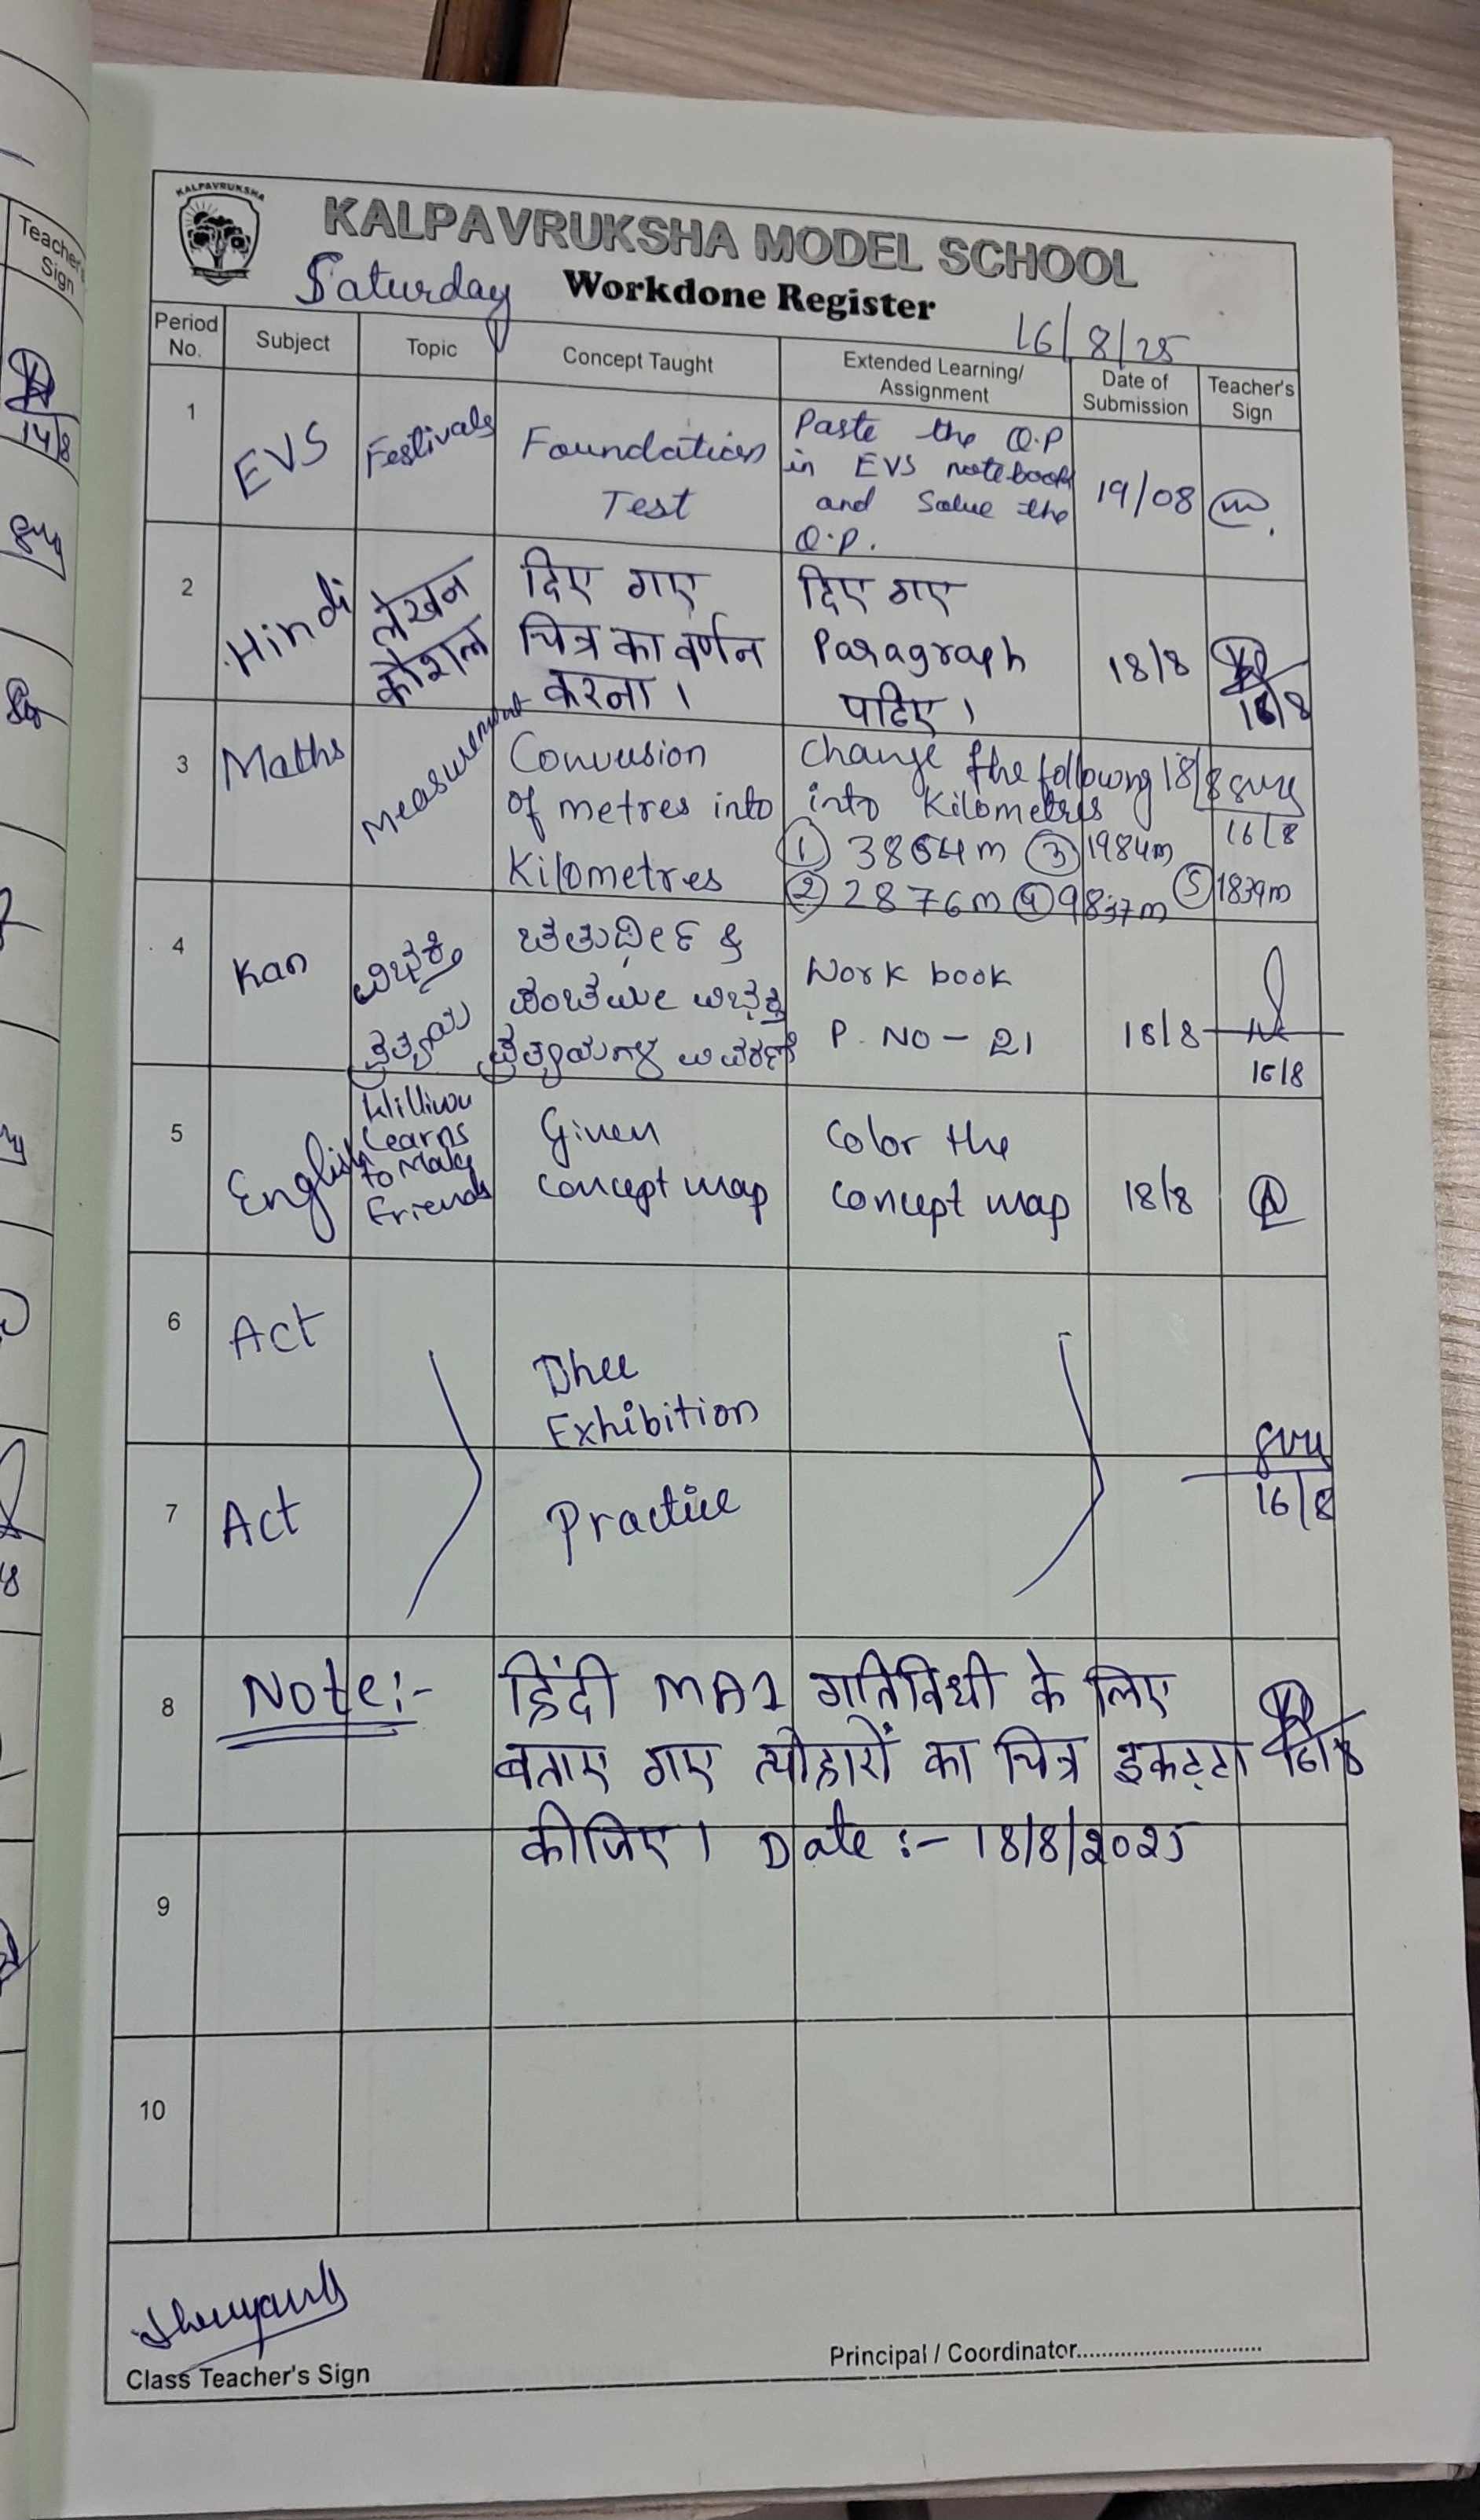 KALPAVRUKSHA
KALPAVRUKSHA MODEL SCHOOL
Saturday
Workdone Register
16/8/25
Period No.
Subject
Topic
Concept Taught
Extended Learning/
Assignment
Date of
Submission
Teacher's
Sign
1
EVS
Festivals
Foundation
Test
Paste the Q.P
in EVS notebook
and Solve the
Q.P.
19/08
2
Hindi
लेखन
कौशल
दिए गए
चित्र का वर्णन
करना।
दिए गए
Paragraph
पढिए।
18/8
16/8
3
Maths
Measurement
Conversion
of metres into
Kilometres
Change the following
into Kilometres
① 3864m ③ 1984m
② 2876m ④ 9837m ⑤ 1839m
18/8
16/8
4
Kan
ವಿಭಕ್ತಿ
ಪ್ರತ್ಯಯ
ಚತುರ್ಥೀ &
ಪಂಚಮೀ ವಿಭಕ್ತಿ
ಪ್ರತ್ಯಯಗಳ ವಿವರಣೆ
Work book
P. NO - 21
18/8
16/8
5
English
Learns
to Make
Friends
Given
concept map
Color the
concept map
18/8
6
Act
Dhee
Exhibition
7
Act
Practice
16/8
8
Note:-
हिंदी MA2 गतिविधी के लिए
बताए गए त्योहारों का चित्र इकट्टा
कीजिए। Date :- 18/8/2025
16/8
9
10
Class Teacher's Sign
Principal / Coordinator..............................
Teacher's
Sign
14/8